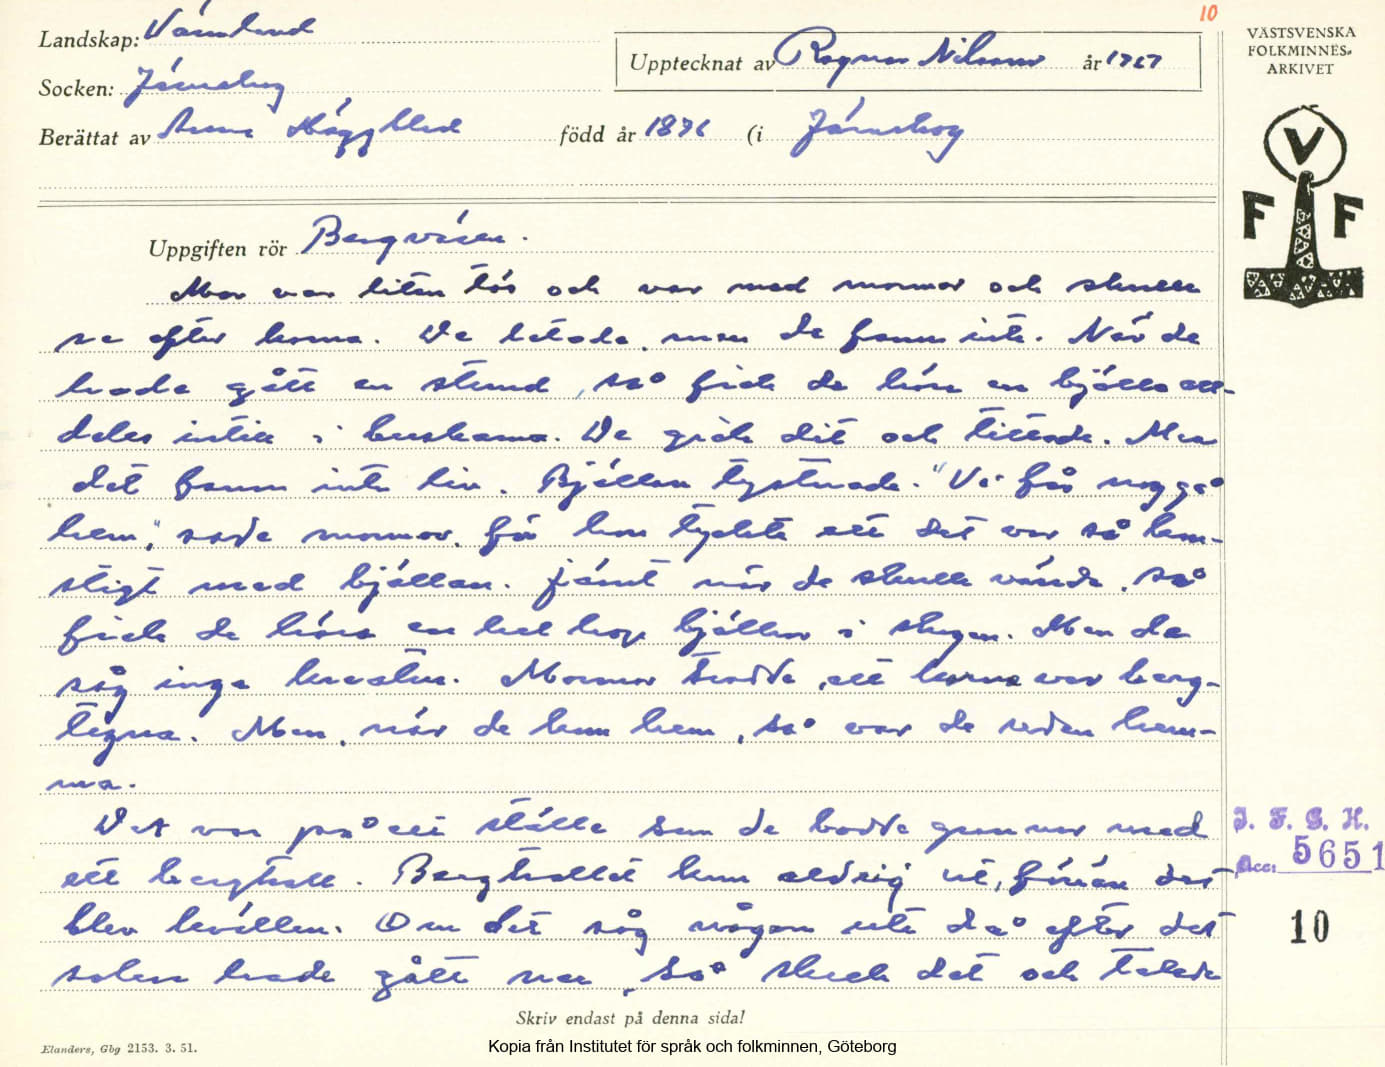 10
Landskap: Värmland
Upptecknat av Ragnar Nilsson år 1967
VÄSTSVENSKA
FOLKMINNES-
ARKIVET
Socken: Järnskog
Berättat av Anna Häggblad född år 1876 (i Järnskog
V
F F
Uppgiften rör Bergväsen.
Mor var liten tös och var med mormor och skulle
se efter korna. De letade, men de fann inte. När de
hade gått en stund, så fick de höra en bjälla all-
deles intill i buskarna. De gick dit och tittade. Men
det fanns inte liv. Bjällan tystnade. "Vi får nog gå
hem", sade mormor, för hon tyckte att det var så kon-
stigt med bjällan. Jämt när de skulle vända, så
fick de höra en hel hop bjällor i skogen. Men de
såg inga kreatur. Mormor trodde, att korna var berg-
tagna. Men, när de kom hem, så var de redan hem-
ma.
Det var på ett ställe som de bodde grannar med
ett bergtroll. Bergtrollet kom aldrig ut, förrän det
blev kvällen. Om det såg någon ute då efter det
solen hade gått ner, så skrek det och talade
J. F. G. H.
Acc: 5651
10
Skriv endast på denna sida!
Elanders, Gbg 2153. 3. 51.
Kopia från Institutet för språk och folkminnen, Göteborg